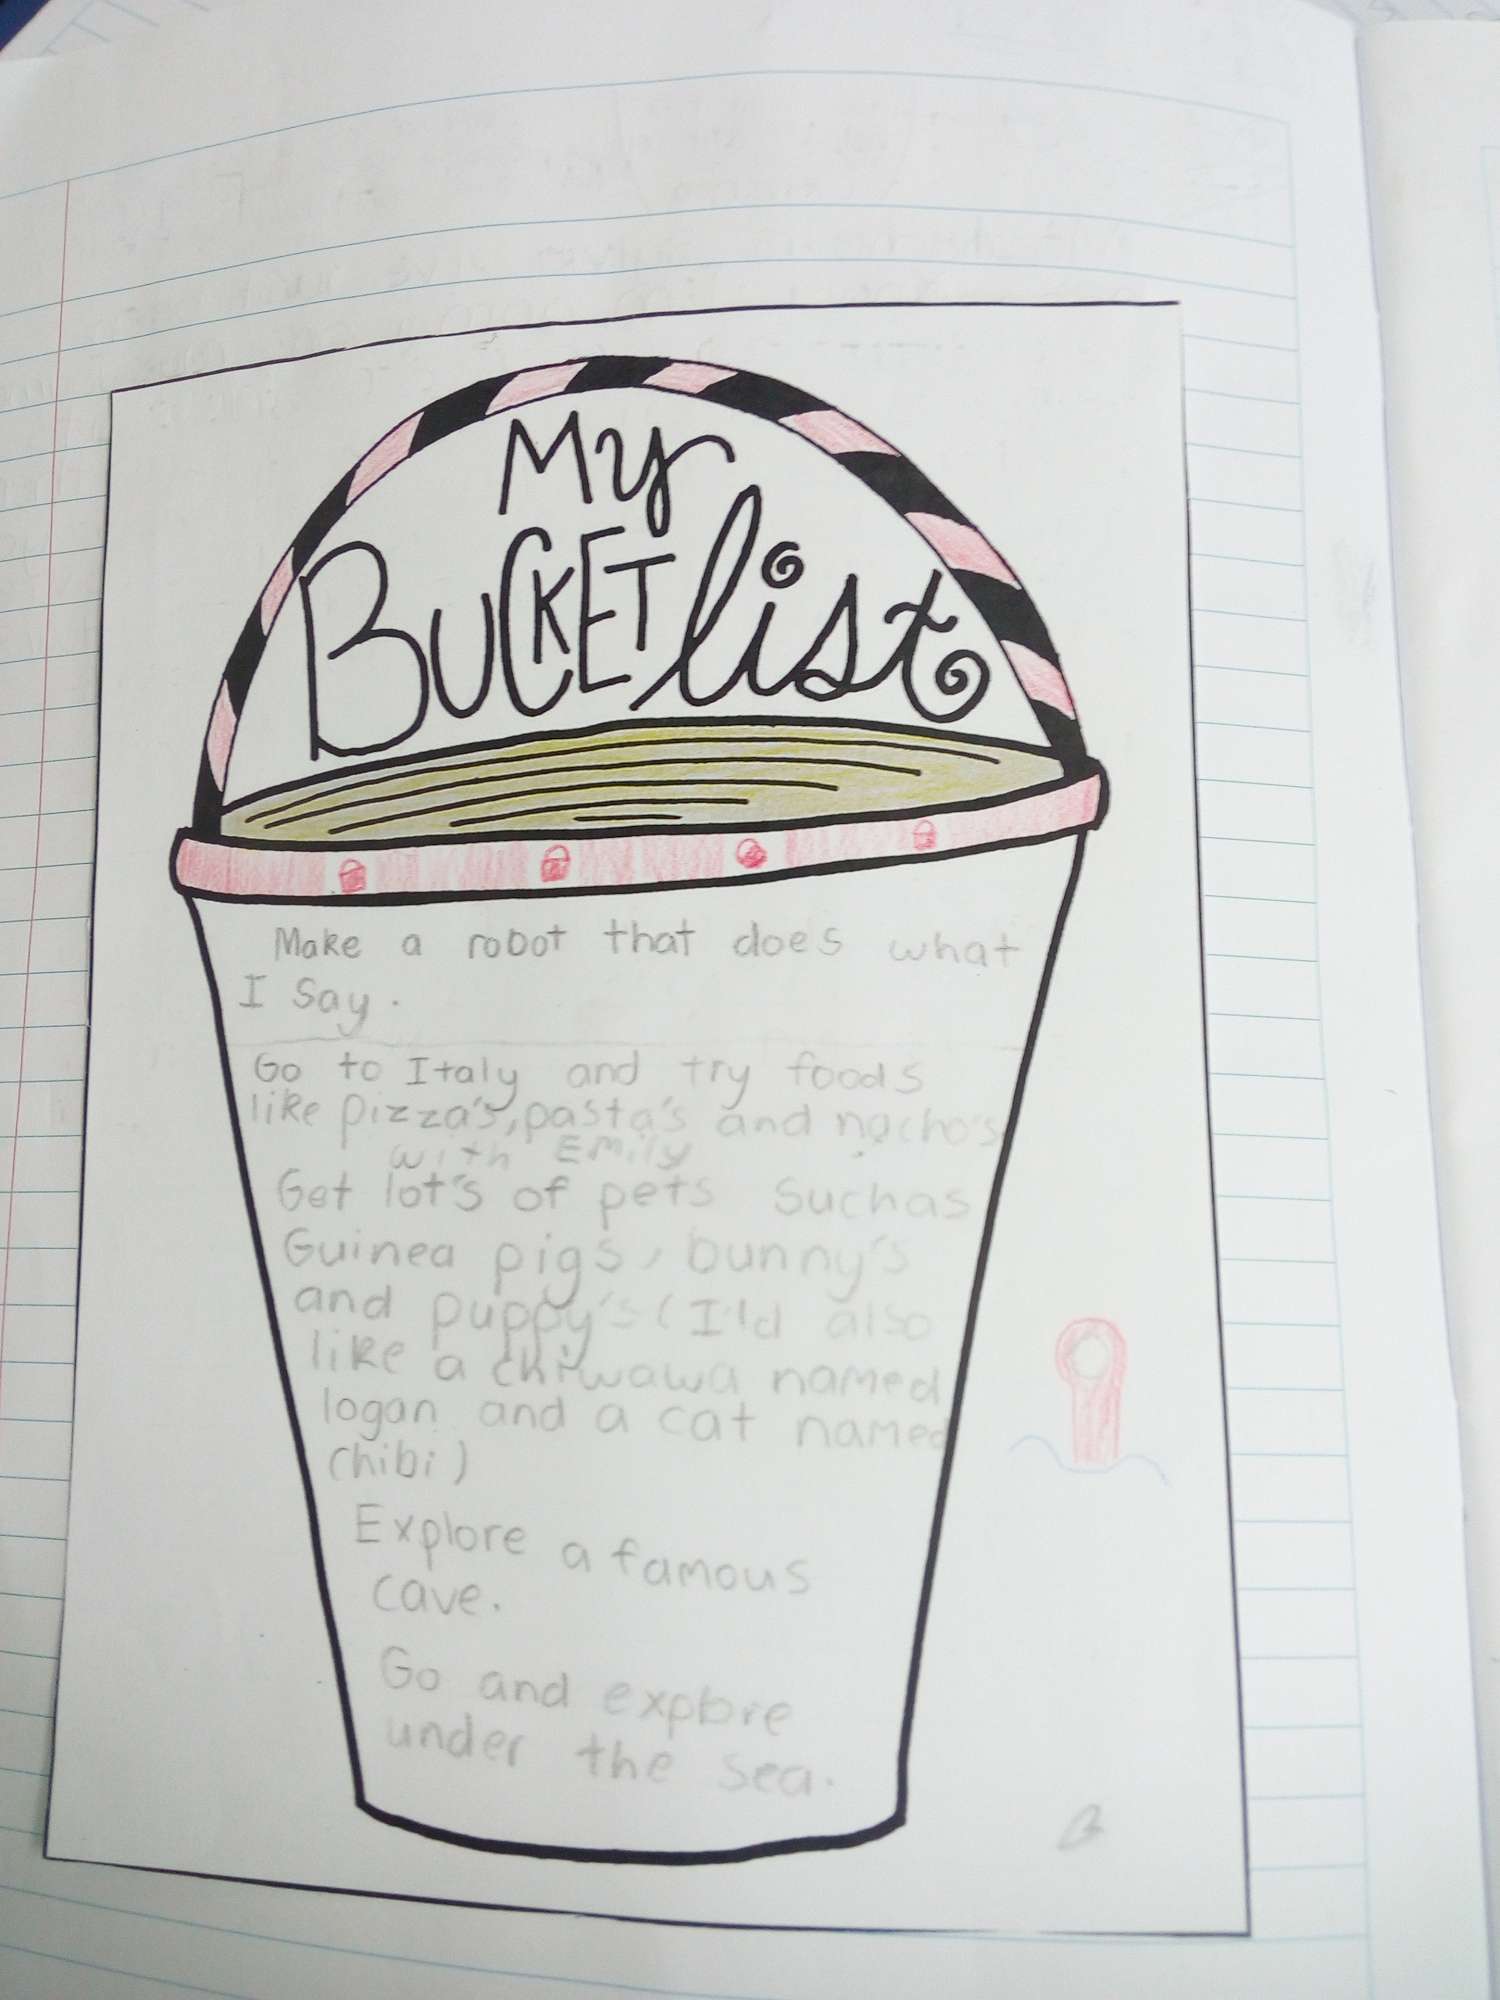 My
BUCKET list
Make a robot that does what
I say.
Go to Italy and try foods
like pizza's, pasta's and nacho's
with Emily
Get lot's of pets suchas
Guinea pigs, bunny's
and puppy's (I'ld also
like a chiwawa named
logan and a cat named
chibi)
Explore a famous
cave.
Go and explore
under the sea.